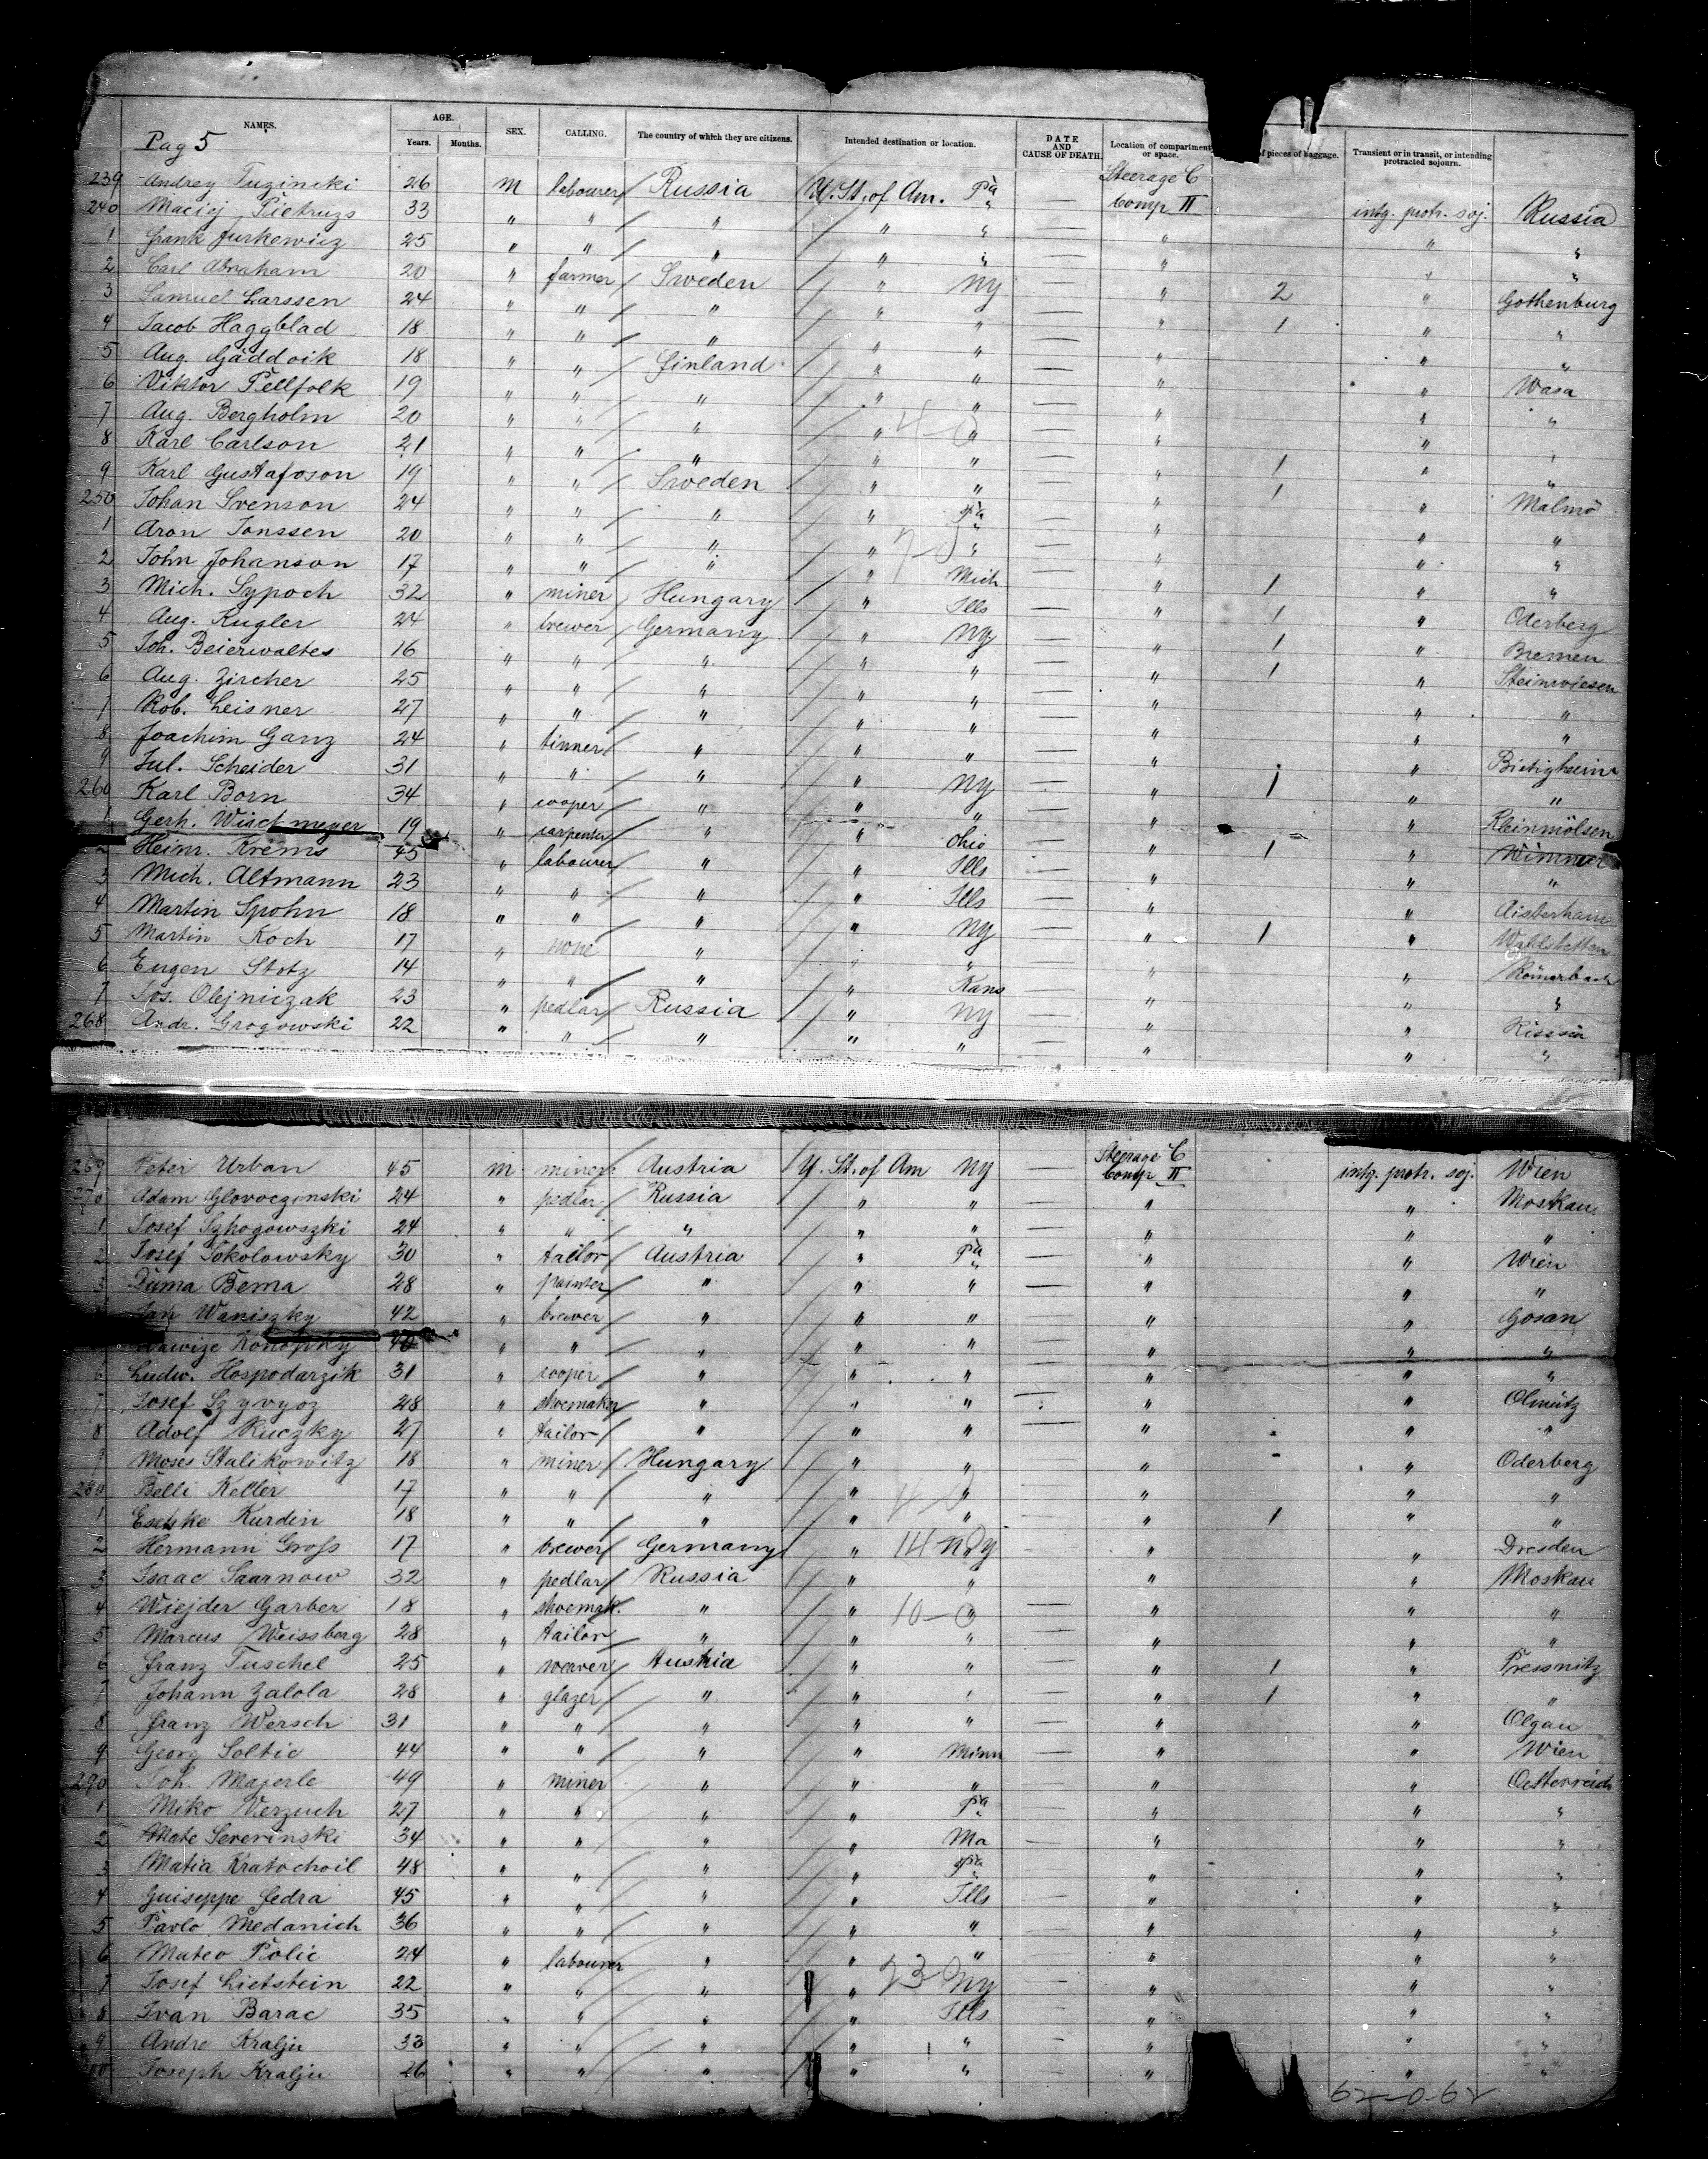 NAMES. AGE. SEX. CALLING. The country of which they are citizens. Intended destination or location. DATE AND CAUSE OF DEATH. Location of compartment or space. of pieces of baggage. Transient or in transit, or intending protracted sojourn.
Years. Months.
Pag 5
239 Andrey Tuzinski 26 m labourer Russia U. St. of Am. Pa — Steerage C Comp II intg. protr. soj. Russia
240 Maciej Pietruzs 33 " " " " " — " " "
1 Frank Jurkewicz 25 " " " " " — " " "
2 Carl Abraham 20 " farmer Sweden " Ny — " 2 " Gothenburg
3 Samuel Larssen 24 " " " " " — " 1 " "
4 Jacob Haggblad 18 " " " " " — " " "
5 Aug. Gäddvik 18 " " Finland " " — " " Wasa
6 Viktor Pellfolk 19 " " " " " — " " "
7 Aug. Bergholm 20 " " " " " — " "
8 Karl Carlson 21 " " " " " — " 1 " "
9 Karl Gustafvson 19 " " Sweden " " — " 1 " Malmö
250 Johan Svenson 24 " " " " Pa — " " "
1 Aron Jonssen 20 " " " " " — " " "
2 John Johanson 17 " " " " Mich — " 1 " "
3 Mich. Sypoch 32 " miner Hungary " Ills — " 1 " Oderberg
4 Aug. Kugler 24 " brewer Germany " Ny — " 1 " Bremen
5 Joh. Beierwaltes 16 " " " " " — " 1 " Steinwiesen
6 Aug. Zircher 25 " " " " " — " " "
7 Rob. Leisner 27 " " " " " — " " "
8 Joachim Ganz 24 " tinner " " " — " " Bietigheim
9 Jul. Scheider 31 " " " " Ny — " 1 " "
260 Karl Born 34 " cooper " " " — " " Kleinmölsen
1 Gerh. Wischmeyer 19 " carpenter " " Ohio — " 1 " Wimmer
2 Heinr. Krems 45 " labourer " " Ills — " " "
3 Mich. Altmann 23 " " " " Ills — " " Aisterham
4 Martin Spohn 18 " " " " Ny — " 1 "
5 Martin Koch 17 " none " " " — " "
6 Eugen Stotz 14 " " " " Kans — " " "
7 Jos. Olejniczak 23 " pedlar Russia " Ny — " " Russia
268 Andr. Grogowski 22 " " " " " — " " "
269 Peter Urban 45 m miner Austria U. St. of Am Ny — Steerage C Comp II intg. protr. soj. Wien
270 Adam Glovoczinski 24 " pedlar Russia " " — " " Moskau
1 Josef Szhogowszki 24 " " " " " — " " "
2 Josef Sokolowsky 30 " tailor Austria " Pa — " " Wien
3 Duma Bema 28 " painter " " " — " " "
Jan Waniszky 42 " brewer " " " — " " Gosan
Konopky " " " " " — " " "
6 Ludw. Hospodarzik 31 " cooper " " " — " " "
7 Josef Szyvyoz 28 " shoemaker " " " — " " Olmütz
8 Adolf Ruczky 27 " tailor " " " — " " "
9 Moses Stalikowitz 18 " miner Hungary " " — " " Oderberg
280 Belli Keller 17 " " " " " — " " "
1 Eschke Kurdin 18 " " " " " — " 1 " "
2 Hermann Gross 17 " brewer Germany " 14 Ny — " " Dresden
3 Isaac Saarnow 32 " pedlar Russia " " — " " Moskau
4 Wiejder Garber 18 " shoemak. " " 10-0 " — " " "
5 Marcus Weissberg 28 " tailor " " " — " " "
6 Franz Tuschel 25 " weaver Austria " " — " 1 " Pressnitz
7 Johann Zalola 28 " glazer " " " — " 1 " "
8 Franz Wersch 31 " " " " " — " " Olgau
9 Georg Soltic 44 " " " " Minn — " " Wien
290 Joh. Majerle 49 " miner " " " — " " Oesterreich
1 Miko Verzuch 27 " " " " Pa — " " "
2 Mate Severinski 34 " " " " Ma — " " "
3 Matia Kratochvil 48 " " " " Pa " " "
4 Guiseppe Fedra 45 " " " " Ills — " " "
5 Pavlo Medanich 36 " " " " " — " " "
6 Mateo Polic 24 " labourer " " " — " " "
7 Josef Lietstein 22 " " " " Ny — " " "
8 Ivan Barac 35 " " " " Ills — " " "
9 Andre Kralju 33 " " " " " — " " "
Joseph Kralju 26 " " " " " — " " "
62-0-62